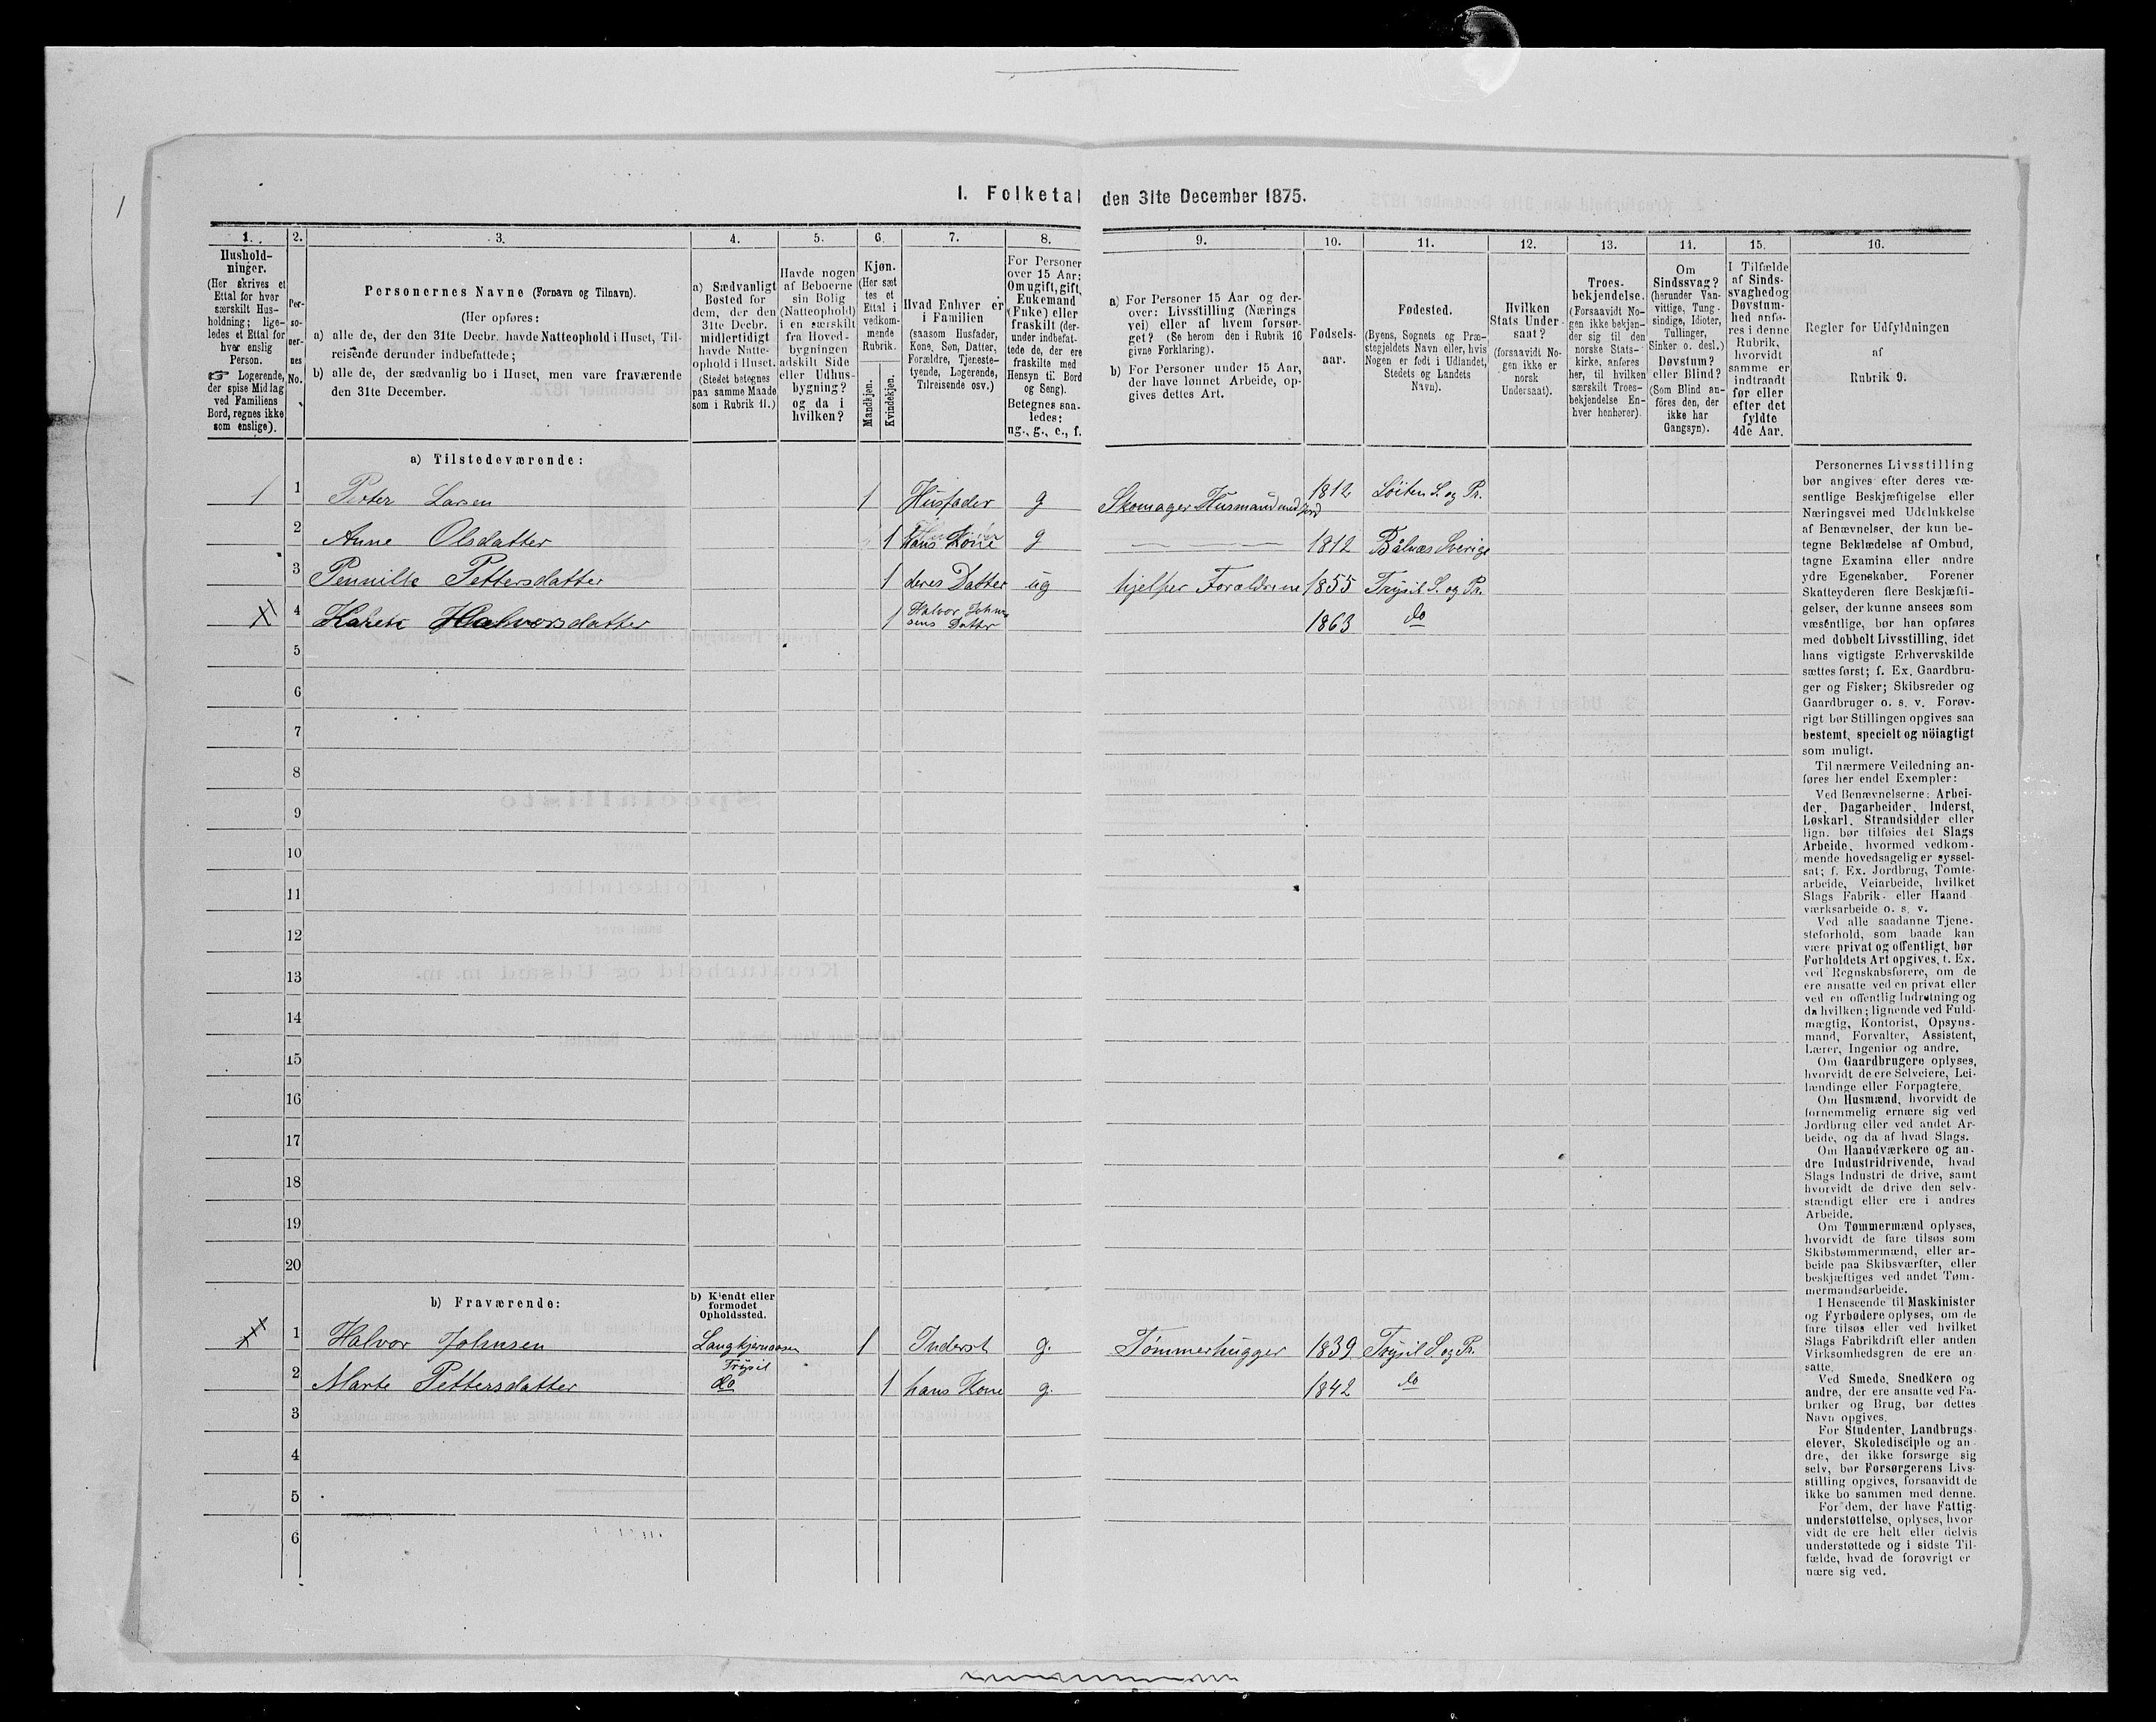 I. Folketal den 31te December 1875.
1. 2. 3. 4. 5. 6. 7. 8. 9. 10. 11. 12. 13. 14. 15. 16.
Hushold-
ninger.
(Her skrives et
Ettal for hver
særskilt Hus-
holdning; lige-
ledes et Ettal for
hver enslig
Person.
☞ Logerende,
der spise Middag
ved Familiens
Bord, regnes ikke
som enslige).
Per-
so-
ner-
nes
No.
Personernes Navne (Fornavn og Tilnavn).
(Her opføres:
a) alle de, der den 31te Decbr. havde Natteophold i Huset, Til-
reisende derunder indbefattede;
b) alle de, der sædvanlig bo i Huset, men vare fraværende
den 31te December.
a) Sædvanligt
Bosted for
dem, der den
31te Decbr.
midlertidigt
havde Natte-
ophold i Huset.
(Stedet betegnes
paa samme Maade
som i Rubrik 11.)
Havde nogen
af Beboerne
sin Bolig
(Natteophold)
i en særskilt
fra Hoved-
bygningen
adskilt Side
eller Udhus-
bygning?
og da i
hvilken?
Kjøn.
(Her sæt
tes et
Ettal i
vedkom-
mende
Rubrik.
Mandkjøn.
Kvindekjøn.
Hvad Enhver er
i Familien
(saasom Husfader,
Kone, Søn, Datter,
Forældre, Tjeneste-
tyende, Logerende,
Tilreisende osv.)
For Personer
over 15 Aar:
Om ugift, gift,
Enkemand
(Enke) eller
fraskilt (der-
under indbefat-
tede de, der ere
fraskilte med
Hensyn til Bord
og Seng).
Betegnes saa-
ledes:
ug., g., e., f.
a) For Personer 15 Aar og der-
over: Livsstilling (Nærings
vei) eller af hvem forsør-
get? (Se herom den i Rubrik 16
givne Forklaring).
b) For Personer under 15 Aar,
der have lønnet Arbeide, op-
gives dettes Art.
Fødsels-
aar.
Fødested.
(Byens, Sognets og Præ-
stegjeldets Navn eller, hvis
Nogen er født i Udlandet,
Stedets og Landets
Navn).
Hvilken
Stats Under-
saat?
(forsaavidt No-
gen ikke er
norsk
Undersaat).
Troes-
bekjendelse.
(Forsaavidt No-
gen ikke bekjen-
der sig til den
norske Stats-
kirke, anføres
her, til hvilken
særskilt Troes-
bekjendelse En-
hver henhører).
Om
Sindssvag?
(herunder Van-
vittige, Tung-
sindige, Idioter,
Tullinger,
Sinker o. desl.)
Døvstum?
eller Blind?
(Som Blind an-
føres den, der
ikke har
Gangsyn).
I Tilfælde
af Sinds-
svaghed og
Døvstum-
hed anfø-
res i denne
Rubrik,
hvorvidt
samme er
indtraadt
før eller
efter det
fyldte
4de Aar.
Regler for Udfyldningen
af
Rubrik 9.
a) Tilstedeværende:
1 1 Petter Larsen 1 Husfader g Skomager Husmand med Jord 1812 Löiten S. og Pr.
2 Anne Olsdatter 1 hans Kone g 1812 Bålnæs Sverige
3 Pernille Pettersdatter 1 deres Datter ug hjelper Forældrene 1855 Trysil S. og Pr.
X 4 Karen Halvorsdatter 1 Halvor Johnsens Datter 1863 do
5
6
7
8
9
10
11
12
13
14
15
16
17
18
19
20
b) Fraværende:
b) Kjendt eller
formodet
Opholdssted.
1 Halvor Johnsen Langkjernaasen Trysil 1 Inderst g. Tømmerhugger 1839 Trysil S. og Pr.
2 Marte Pettersdatter do 1 hans Kone g. 1842 do
3
4
5
6
Personernes Livsstilling
bør angives efter deres væ-
sentlige Beskjæftigelse eller
Næringsvei med Udelukkelse
af Benævnelser, der kun be-
tegne Beklædelse af Ombud,
tagne Examina eller andre
ydre Egenskaber. Forener
Skatteyderen flere Beskjæfti-
gelser, der kunne ansees som
væsentlige, bør han opføres
med dobbelt Livsstilling, idet
hans vigtigste Erhvervskilde
sættes først; f. Ex. Gaardbru-
ger og Fisker; Skibsreder og
Gaardbruger o. s. v. Forøv-
rigt bør Stillingen opgives saa
bestemt, specielt og nöiagtigt
som muligt.
Til nærmere Veiledning an-
føres her endel Exempler:
Ved Benævnelserne: Arbei-
der, Dagarbeider, Inderst,
Løskarl, Strandsidder eller
lign. bør tilføies det Slags
Arbeide, hvormed vedkom-
mende hovedsagelig er syssel-
sat; f. Ex. Jordbrug, Tomte-
arbeide, Veiarbeide, hvilket
Slags Fabrik- eller Haand
værksarbeide o. s. v.
Ved alle saadanne Tjene-
steforhold, som baade kan
være privat og offentligt, bør
Forholdets Art opgives, t. Ex.
ved Regnskabsførere, om de
ere ansatte ved en privat eller
ved en offentlig Indretning og
da hvilken; lignende ved Fuld-
mægtig, Kontorist, Opsyns-
mand, Forvalter, Assistent,
Lærer, Ingeniør og andre.
Om Gaardbrugere oplyses,
hvorvidt de ere Selveiere, Lei-
lændinge eller Forpagtere.
Om Husmænd, hvorvidt de
fornemmelig ernære sig ved
Jordbrug eller ved andet Ar-
beide, og da af hvad Slags.
Om Haandværkere og an-
dre Industridrivende, hvad
Slags Industri de drive, samt
hvorvidt de drive den selv-
stændigt eller ere i andres
Arbeide.
Om Tømmermænd oplyses,
hvorvidt de fare tilsøs som
Skibstømmermænd, eller ar-
beide paa Skibsværfter, eller
beskjæftiges ved andet Tøm-
mermandsarbeide.
I Henseende til Maskinister
og Fyrbødere oplyses, om de
fare tilsøs eller ved hvilket
Slags Fabrikdrift eller anden
Virksomhedsgren de ere an-
satte.
Ved Smede, Snedkere og
andre, der ere ansatte ved Fa-
briker og Brug, bør dettes
Navn opgives.
For Studenter, Landbrugs-
elever, Skoledisciple og an-
dre, der ikke forsørge sig
selv, bør Forsørgerens Livs-
stilling opgives, forsaavidt de
ikke bo sammen med denne.
For dem, der have Fattig-
understøttelse, oplyses, hvor-
vidt de ere helt eller delvis
understøttede og i sidste Til-
fælde, hvad de forøvrigt er
nære sig ved.